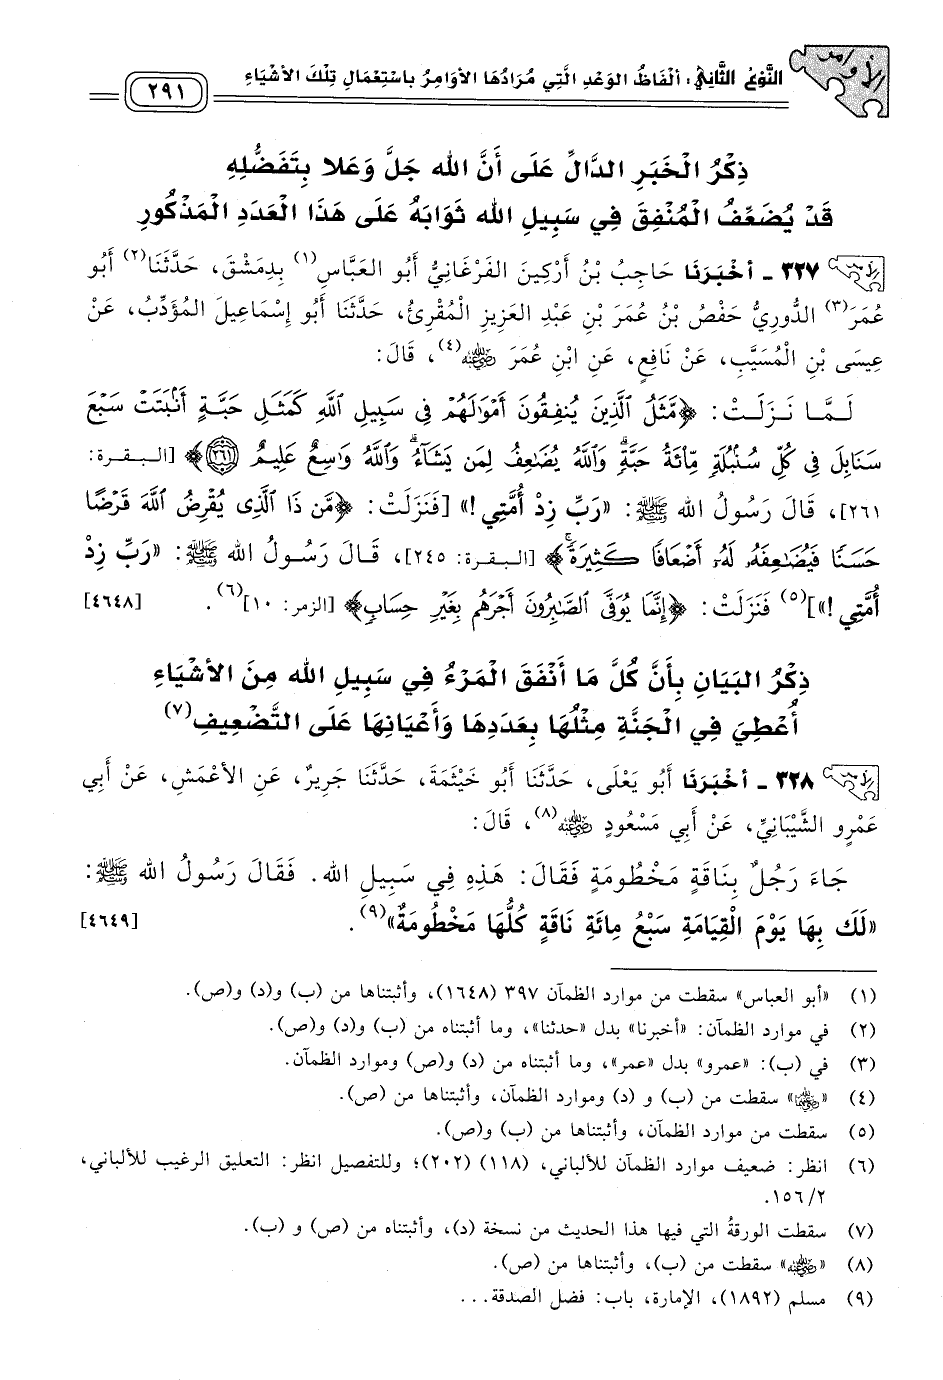 الأوامر
النَّوْعُ الثَّانِي: ألْفَاظُ الوَعْدِ الَّتِي مُرَادُهَا الأوَامِرُ بِاسْتِعْمَالِ تِلْكَ الأشْيَاءِ
٢٩١
ذِكْرُ الْخَبَرِ الدَّالِّ عَلَى أَنَّ اللهَ جَلَّ وَعَلا بِتَفَضُّلِهِ
قَدْ يُضَعِّفُ الْمُنْفِقَ فِي سَبِيلِ اللهِ ثَوَابَهُ عَلَى هَذَا الْعَدَدِ الْمَذْكُورِ
٣٢٧ - أخْبَرَنَا حَاجِبُ بْنُ أَرْكِينَ الفَرْغَانِيُّ أَبُو العَبَّاسِ(١) بِدِمَشْقَ، حَدَّثَنَا(٢) أَبُو
عُمَرَ(٣) الدُّورِيُّ حَفْصُ بْنُ عُمَرَ بْنِ عَبْدِ العَزِيزِ الْمُقْرِئُ، حَدَّثَنَا أَبُو إِسْمَاعِيلَ المُؤَدِّبُ، عَنْ
عِيسَى بْنِ الْمُسَيَّبِ، عَنْ نَافِعٍ، عَنِ ابْنِ عُمَرَ ﵁(٤)، قَالَ:
لَـمَّا نَزَلَتْ: ﴿مَّثَلُ ٱلَّذِينَ يُنفِقُونَ أَمْوَٰلَهُمْ فِى سَبِيلِ ٱللَّهِ كَمَثَلِ حَبَّةٍ أَنۢبَتَتْ سَبْعَ
سَنَابِلَ فِى كُلِّ سُنۢبُلَةٍ مِّا۟ئَةُ حَبَّةٍ ۗ وَٱللَّهُ يُضَٰعِفُ لِمَن يَشَآءُ ۗ وَٱللَّهُ وَٰسِعٌ عَلِيمٌ ٢٦١﴾ [البقرة:
٢٦١]، قَالَ رَسُولُ اللهِ ﷺ: «رَبِّ زِدْ أُمَّتِي!» [فَنَزَلَتْ: ﴿مَّن ذَا ٱلَّذِى يُقْرِضُ ٱللَّهَ قَرْضًا
حَسَنًا فَيُضَٰعِفَهُۥ لَهُۥٓ أَضْعَافًا كَثِيرَةً ۚ﴾ [البقرة: ٢٤٥]، قَالَ رَسُولُ اللهِ ﷺ: «رَبِّ زِدْ
أُمَّتِي!»](٥) فَنَزَلَتْ: ﴿إِنَّمَا يُوَفَّى ٱلصَّٰبِرُونَ أَجْرَهُم بِغَيْرِ حِسَابٍ﴾ [الزمر: ١٠](٦). [٤٦٤٨]
ذِكْرُ البَيَانِ بِأَنَّ كُلَّ مَا أَنْفَقَ الْمَرْءُ فِي سَبِيلِ اللهِ مِنَ الأشْيَاءِ
أُعْطِيَ فِي الْجَنَّةِ مِثْلُهَا بِعَدَدِهَا وَأَعْيَانِهَا عَلَى التَّضْعِيفِ(٧)
٣٢٨ - أخْبَرَنَا أَبُو يَعْلَى، حَدَّثَنَا أَبُو خَيْثَمَةَ، حَدَّثَنَا جَرِيرٌ، عَنِ الأَعْمَشِ، عَنْ أَبِي
عَمْرٍو الشَّيْبَانِيِّ، عَنْ أَبِي مَسْعُودٍ ﵁(٨)، قَالَ:
جَاءَ رَجُلٌ بِنَاقَةٍ مَخْطُومَةٍ فَقَالَ: هَذِهِ فِي سَبِيلِ اللهِ. فَقَالَ رَسُولُ اللهِ ﷺ:
«لَكَ بِهَا يَوْمَ الْقِيَامَةِ سَبْعُ مِائَةِ نَاقَةٍ كُلُّهَا مَخْطُومَةٌ»(٩). [٤٦٤٩]
(١) «أبو العباس» سقطت من موارد الظمآن ٣٩٧ (١٦٤٨)، وأثبتناها من (ب) و(د) و(ص).
(٢) في موارد الظمآن: «أخبرنا» بدل «حدثنا»، وما أثبتناه من (ب) و(د) و(ص).
(٣) في (ب): «عمرو» بدل «عمر»، وما أثبتناه من (د) و(ص) وموارد الظمآن.
(٤) «﵁» سقطت من (ب) و (د) وموارد الظمآن، وأثبتناها من (ص).
(٥) سقطت من موارد الظمآن، وأثبتناها من (ب) و(ص).
(٦) انظر: ضعيف موارد الظمآن للألباني، (١١٨) (٢٠٢)؛ وللتفصيل انظر: التعليق الرغيب للألباني،
٢/ ١٥٦.
(٧) سقطت الورقةُ التي فيها هذا الحديث من نسخة (د)، وأثبتناه من (ص) و (ب).
(٨) «﵁» سقطت من (ب)، وأثبتناها من (ص).
(٩) مسلم (١٨٩٢)، الإمارة، باب: فضل الصدقة...